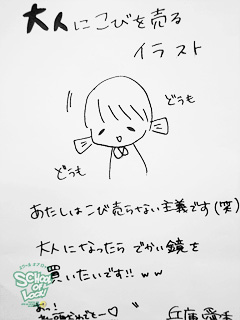 大人にこびを売る
イラスト
どうも
どうも
あたしはこび売らない主義です(笑)
大人になったら でかい鏡を
買いたいです!! ww
SCHOOL OF LOCK!